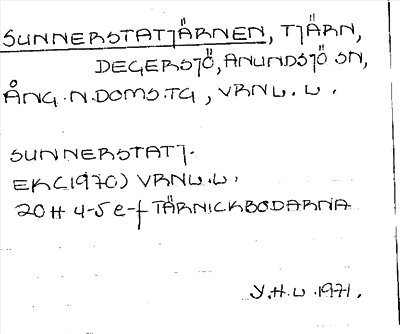 SUNNERSTATJÄRNEN, TJÄRN,
DEGERSJÖ, ANUNDSJÖ SN,
ÅNG. N. DOMS. TG, VRNL. L.
SUNNERSTATJ.
EK(1970) VRNL.L.
20H 4-5 e-f TÄRNICKBODARNA
Y.H.L. 1971.